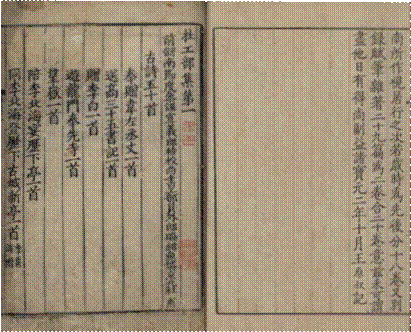 所作視居行之次若歲時為先後分十八卷又別
錄賦筆雜著二十九篇為二卷合二十卷意茲未可謂
盡他日有得尚副益諸寶元二年十月王原叔記
杜工部集第一
前劍南節度參謀宣義郎檢校尚書工部員外郎賜緋魚袋京兆杜甫
古詩五十首
奉贈韋左丞丈一首
送高三十五書記一首
贈李白一首
遊龍門奉先寺一首
望嶽一首
陪李北海宴歷下亭一首
同李北海登歷下古城新亭一首